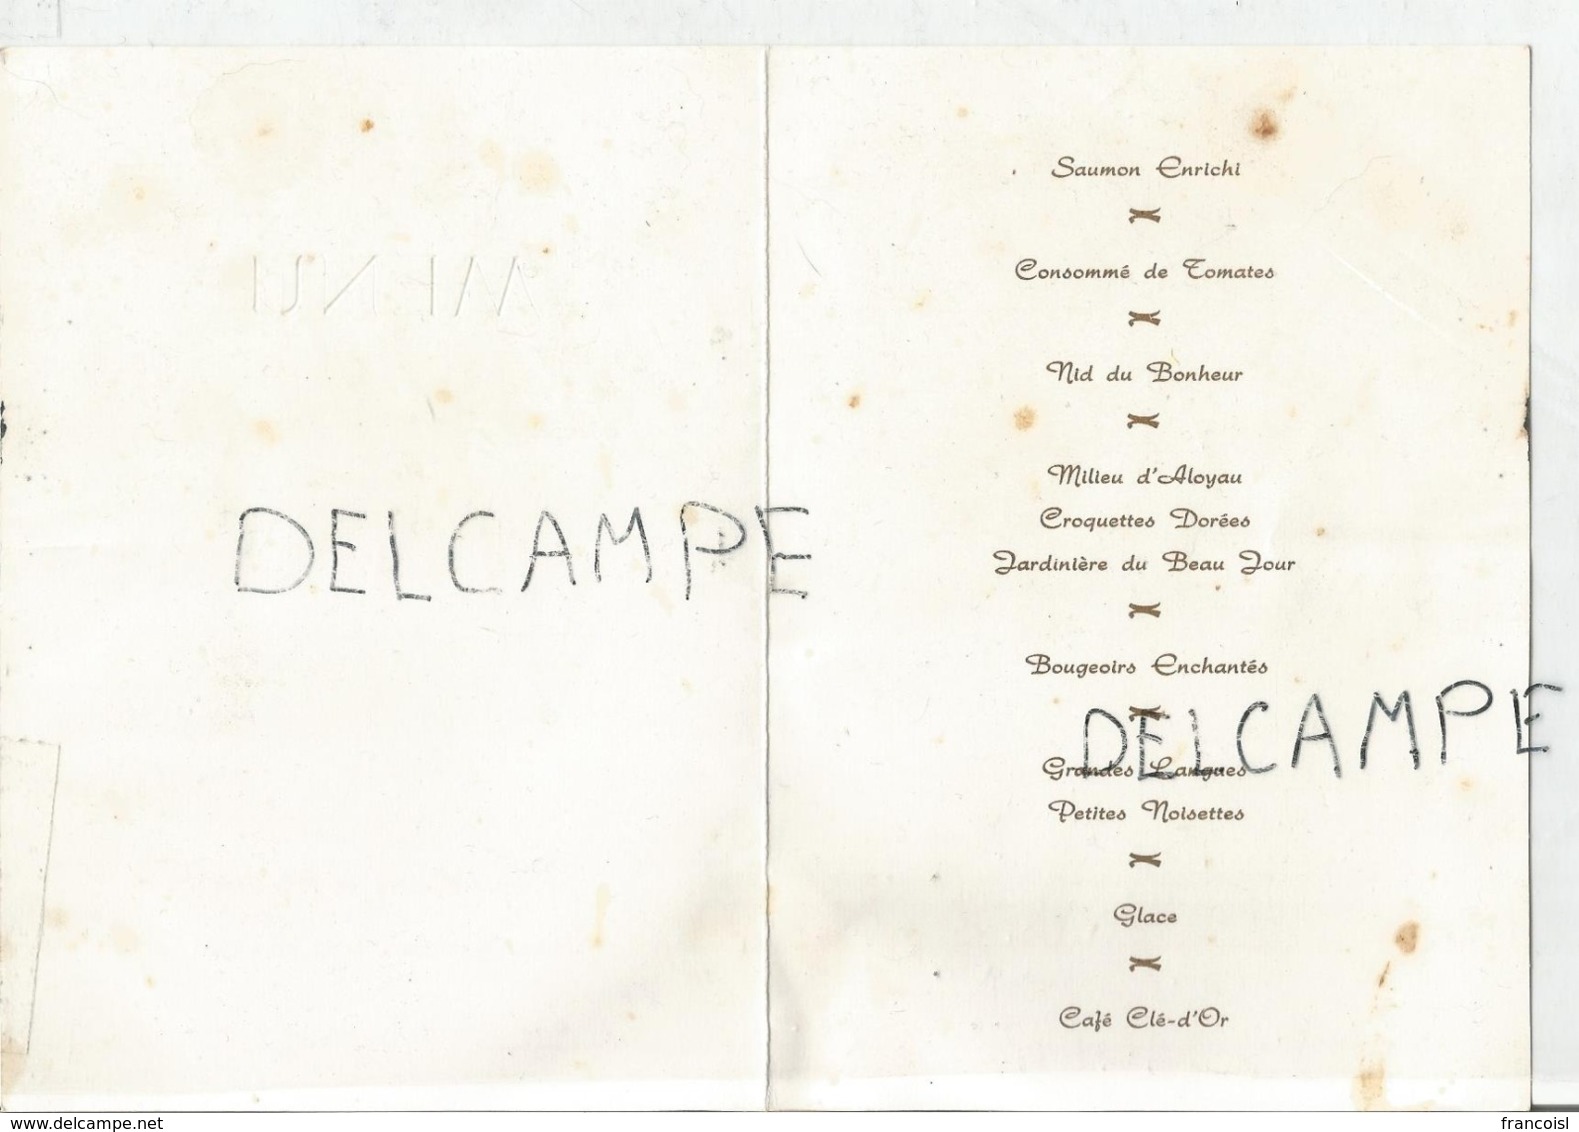 MENU
Saumon Enrichi
Consommé de Tomates
Nid du Bonheur
Milieu d'Aloyau
Croquettes Dorées
Jardinière du Beau Jour
Bougeoirs Enchantés
Grandes Langues
Petites Noisettes
Glace
Café Clé-d'Or
DELCAMPE
DELCAMPE
www.delcampe.net
francoisl